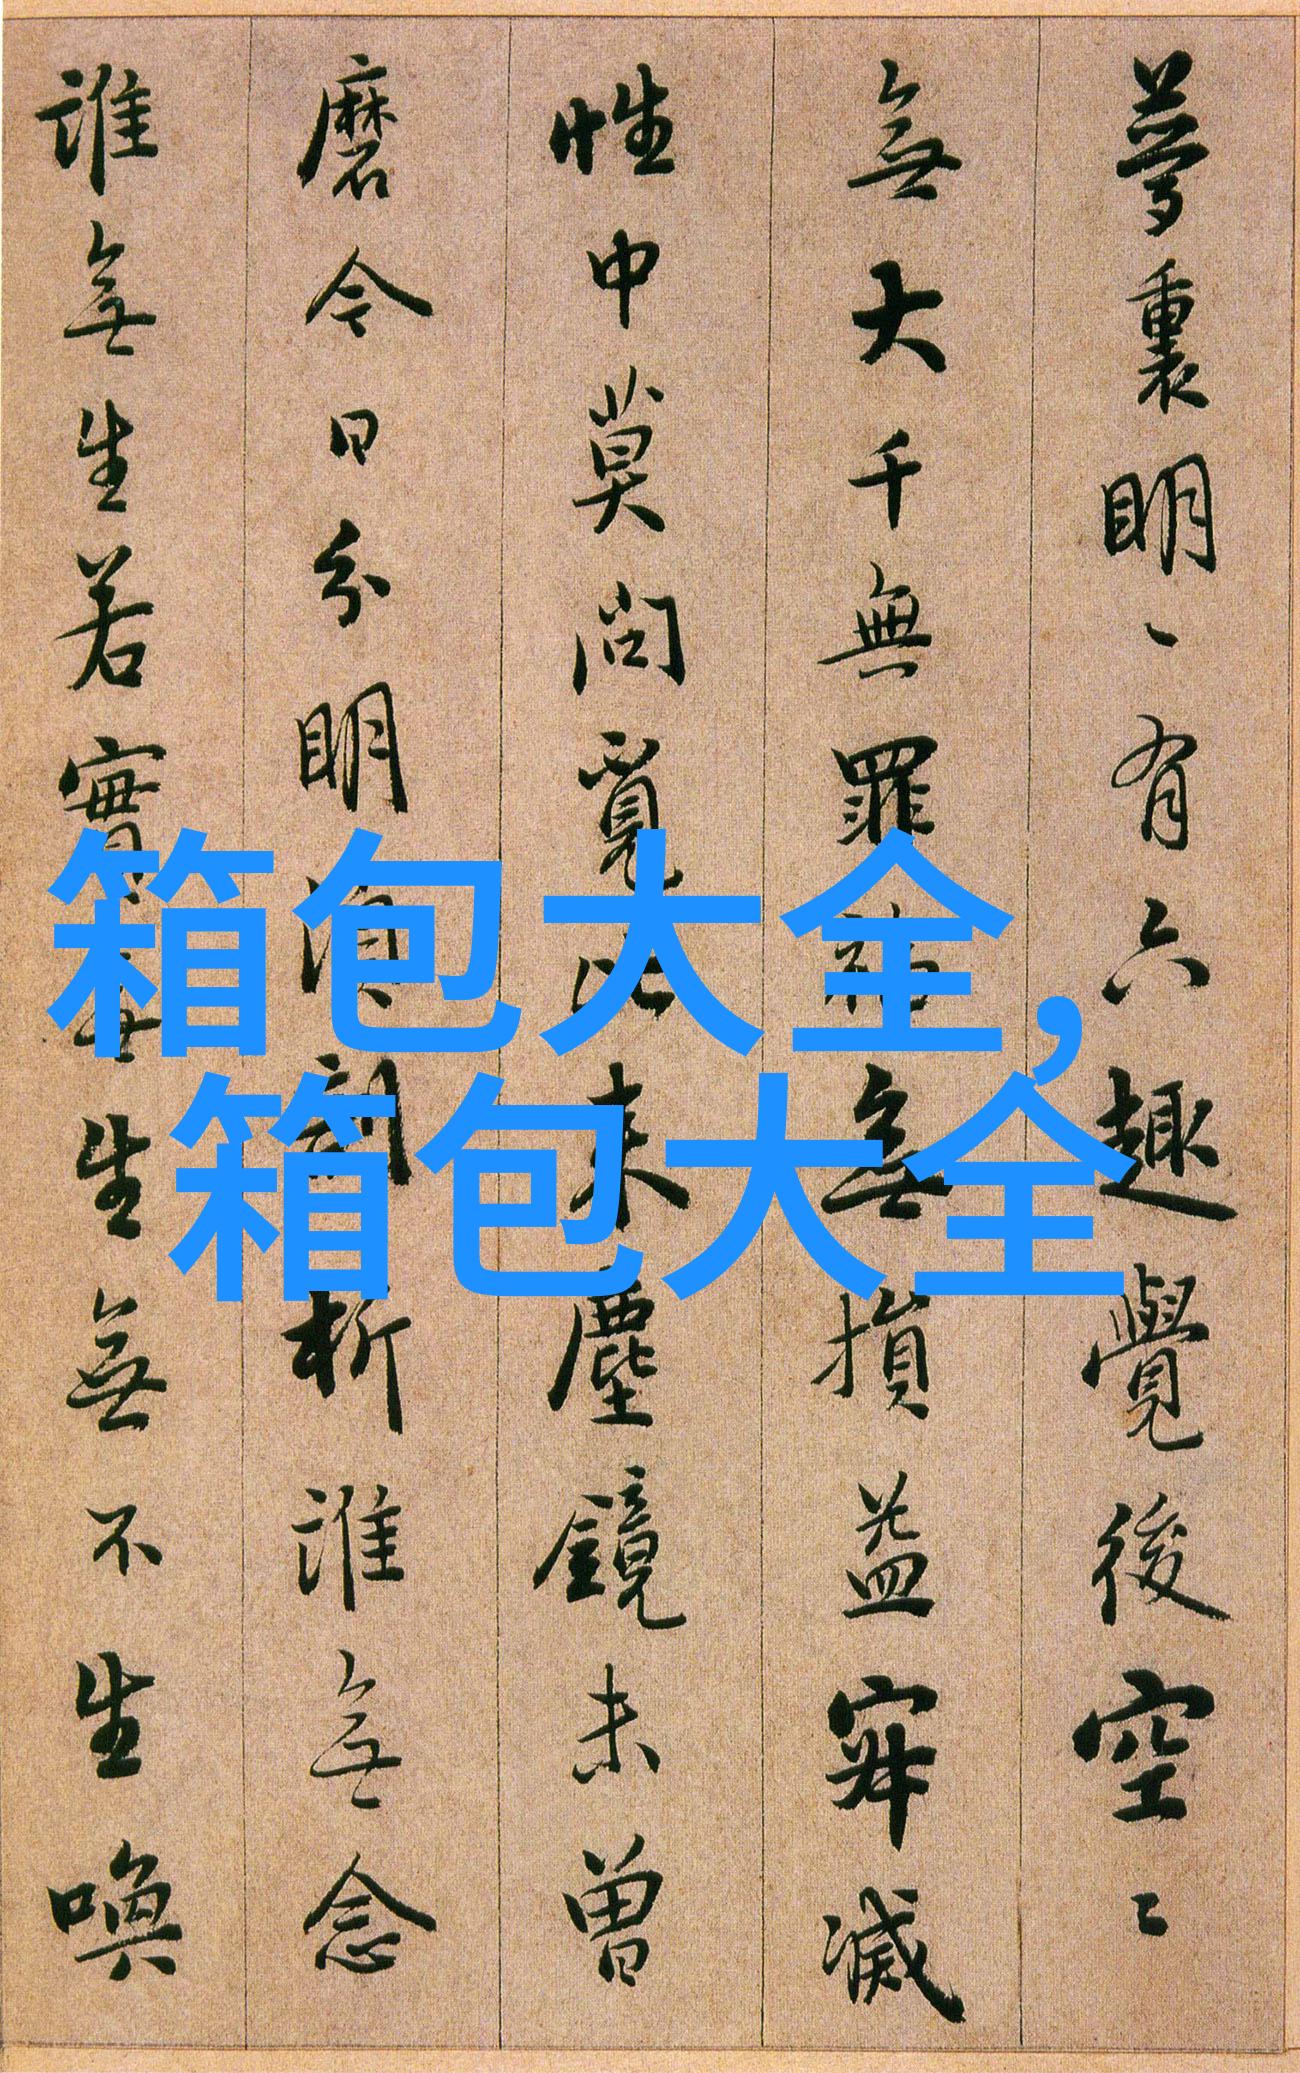 夢裏明〻有六趣覺後空〻
無大千無罪福無損益寂滅
性中莫問覓比来塵鏡未曾
磨今日分明須剖析誰無念
誰無生若實無生無不生喚
箱包大全,
箱包大全